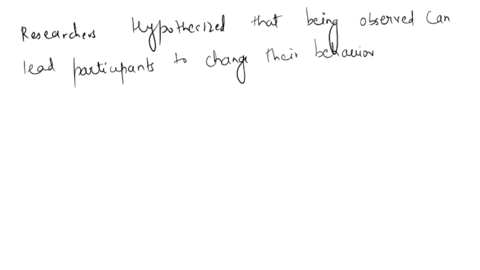 Researchers Hypothesized that being observed can
lead participants to change their behavior